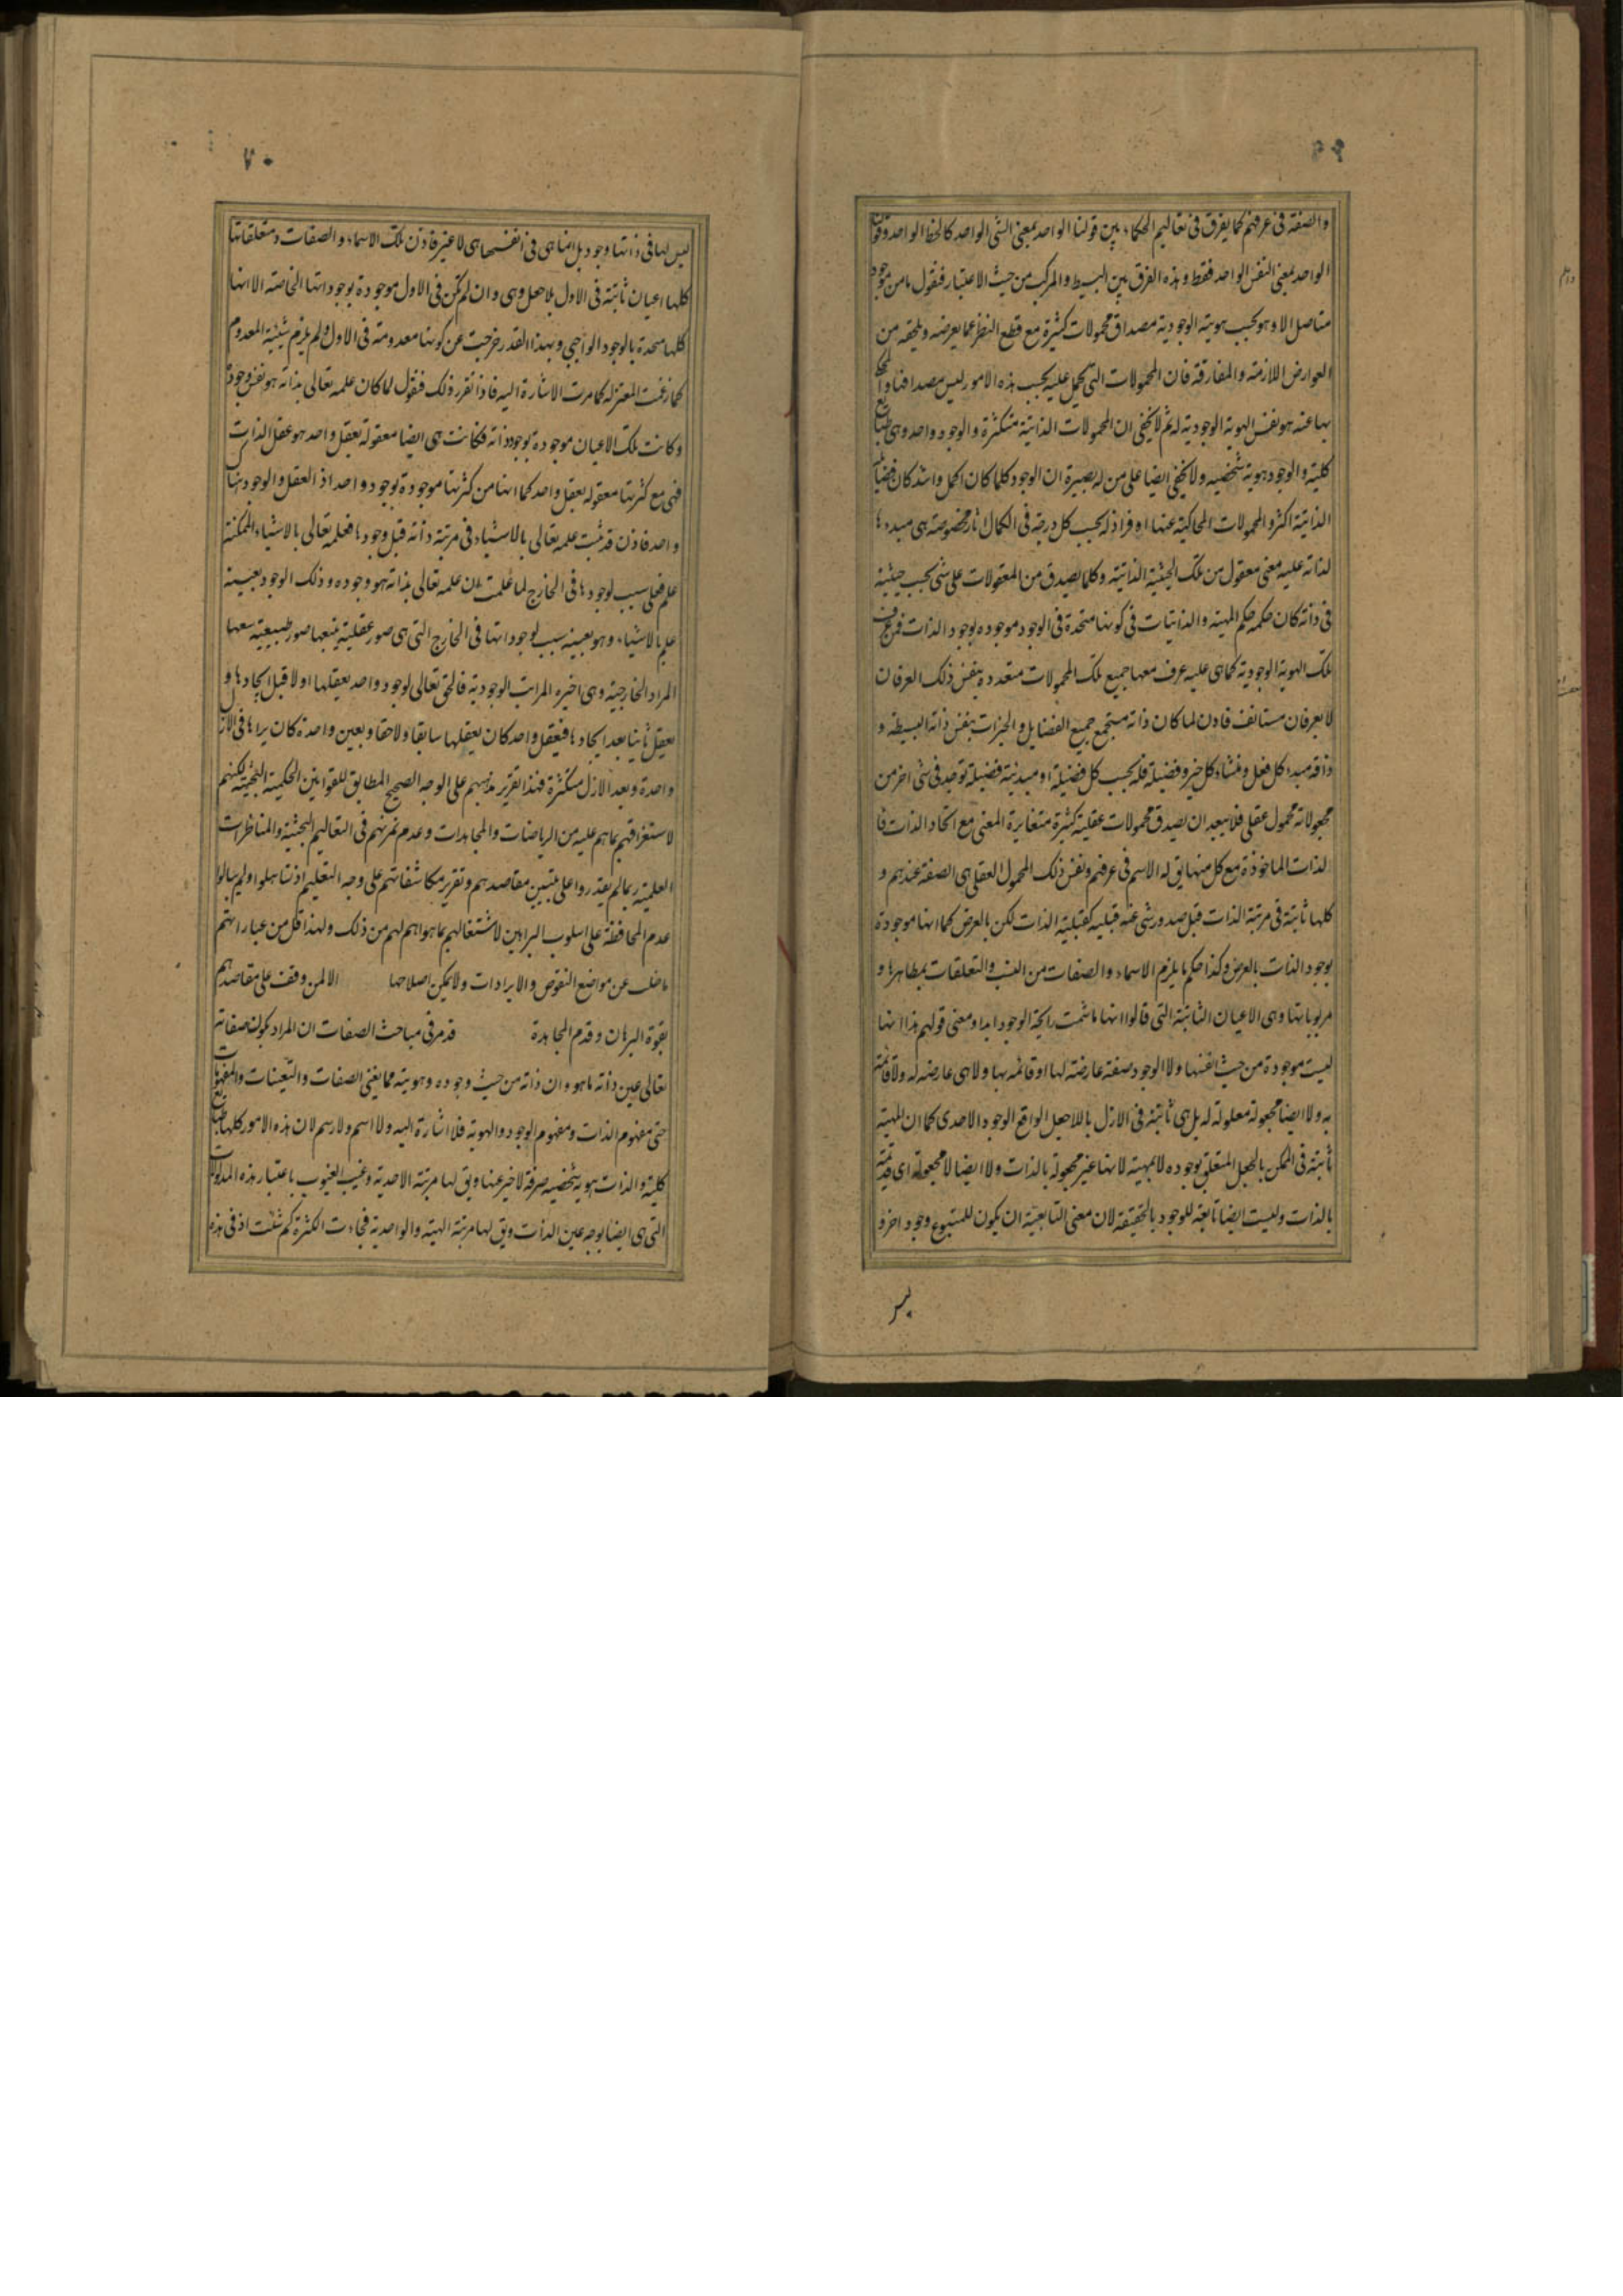 ٦٩
والصفة فى عرفهم كما يفرق فى تعاليم الحكماء بين قولنا الواحد بمعنى الشى الواحد كالخط الواحد وقولنا
الواحد بمعنى النفس الواحد فقط وبهذه الفرق بين البسيط والمركب من حيث الاعتبار فنقول ما من موجود
متاصل الا وهو بحسب هويته الوجودية مصداق محمولات كثيرة مع قطع النظر عما يعرضه ويلحقه من
العوارض اللازمة والمفارقة فان المحمولات التى تحمل عليه بحسب هذه الامور ليس مصداقها والحكم
بها عنه هو نفس الهوية الوجودية له ثم لا يخفى ان المحمولات الذاتية متكثرة والوجود واحد وهى طبايع
كلية والوجود هوية شخصية ولا يخفى ايضا على من له بصيرة ان الوجود كلما كان اكمل واشد كان فضايله
الذاتية اكثر والمحمولات المحاكية عنها اوفر اذ له بحسب كل درجة فى الكمال اثار مخصوصة هى مبدءها
لذاته عليه معنى معقول من تلك الحيثية الذاتية وكلما يصدق من المعقولات على شى بحسب حيثية
فى ذاته كان حكمه حكم المهية والذاتيات فى كونها متحدة فى الوجود موجوده بوجود الذات فمن عرف
تلك الهوية الوجودية كما هى عليه عرف معها جميع تلك المحمولات متعددة بنفس ذلك العرفان
لا بعرفان مستانف فاذن لما كان ذاته مستجمع جميع الفضايل والخيرات بنفس ذاته البسيطة و
ذاته مبدء كل فعل ومنشاء كل خير وفضيلة فله بحسب كل فضيلة او مبدئية فضيلة توجد فى شى اخر من
مجعولاته محمول عقلى فلا يبعد ان يصدق محمولات عقلية كثيرة متغايرة المعنى مع اتحاد الذات فا
لذات الماخوذة مع كل منها يق له الاسم فى عرفهم ونفس ذلك المحمول العقلى هى الصفة عندهم و
كلها ثابتة فى مرتبة الذات قبل صدور شى عنه قبليه كقبلية الذات لكن بالعرض كما انها موجودة
بوجود الذات بالعرض وكذا حكم ما يلزم الاسماء والصفات من النسب والتعلقات بمظاهرها و
مربوباتها وهى الاعيان الثابتة التى قالوا انها ما شمت رايحة الوجود ابدا ومعنى قولهم هذا انها
ليست موجودة من حيث انفسها ولا الوجود صفة عارضة لها او قائمة بها ولا هى عارضه له ولا قائمة
به ولا ايضا مجعولة معلولة له بل هى ثابتة فى الازل باللاجعل الواقع الوجود الاحدى كما ان المهية
ثابتة فى الممكن بالجعل المتعلق بوجوده لا بمهيته لانها غير مجعولة بالذات ولا ايضا لا مجعولة اى قديمة
بالذات وليست ايضا تابعة للوجود بالحقيقة لان معنى التابعية ان يكون للمتبوع وجود اخر و
ليس
٧٠
ليس لها فى ذاتها وجود بل انما هى فى انفسها هى لا غير فاذن تلك الاسماء والصفات ومتعلقاتها
كلها اعيان ثابتة فى الاول بلا جعل وهى وان لم تكن فى الاول موجودة بوجوداتها الخاصة الا انها
كلها متحدة بالوجود الواجبى وبهذا القدر خرجت عن كونها معدومة فى الاول ولم يلزم شيئية المعدوم
كما زعمت المعتزله كما مرت الاشارة اليه فاذا تقرر ذلك فنقول لما كان علمه تعالى بذاته هو نفس وجوده
وكانت تلك الاعيان موجودة بوجود ذاته فكانت هى ايضا معقولة بعقل واحد هو عقل الذات
فهى مع كثرتها معقولة بعقل واحد كما انها من كثرتها موجودة بوجود واحد اذ العقل والوجود هنا
واحد فاذن قد ثبت علمه تعالى بالاشياء فى مرتبة ذاته قبل وجودها فعلمه تعالى بالاشياء الممكنة
علم فعلى سبب لوجودها فى الخارج لما علمت ان علمه تعالى بذاته هو وجوده وذلك الوجود بعينه
علم بالاشياء وهو بعينه سبب لوجوداتها فى الخارج التى هى صور عقلية يتبعها صور طبيعية تتبعها
المراد الخارجية وهى اخيره المراتب الوجودية فالحق تعالى لوجود واحد يعقلها اولا قبل ايجادها و
يعقل ثانيا بعد ايجادها فبعقل واحد كان يعقلها سابقا ولاحقا وبعين واحدة كان يراها فى الازل
واحدة وبعد الازل متكثرة فهذا تقرير مذهبهم على الوجه الصحيح المطابق للقوانين الحكمية البحثية لكنهم
لاستغراقهم بما هم عليه من الرياضات والمجاهدات وعدم تمرنهم فى التعاليم البحثية والمناظرات
العلمية ربما لم يقدروا على تبيين مقاصدهم وتقرير مكاشفاتهم على وجه التعليم اذ تساهلوا ولم يبالوا
عدم المحافظة على اسلوب البراهين لاشتغالهم بما هو اهم لهم من ذلك ولهذا قل من عباراتهم
ما خلت عن مواضع النقوض والايرادات ولا يمكن اصلاحها الا لمن وقف على مقاصدهم
بقوة البرهان وقدم المجاهدة قد مر فى مباحث الصفات ان المراد بكون صفاته
تعالى عين ذاته ما هو وان ذاته من حيث وجوده وهويته مما يغنى الصفات والتعينات والمفهومات
حتى مفهوم الذات ومفهوم الوجود والهوية فلا اشارة اليه ولا اسم ولا رسم لان هذه الامور كلها طبايع
كلية والذات هوية شخصية صرفة لا خبر عنها ويق لها مرتبة الاحدية وغيب الغيوب باعتبار هذه المدلولات
التى هى ايضا بوجه عين الذات ويق لها مرتبة الهية والواحدية فجاءت الكثرة كم شئت اذ فى هذه